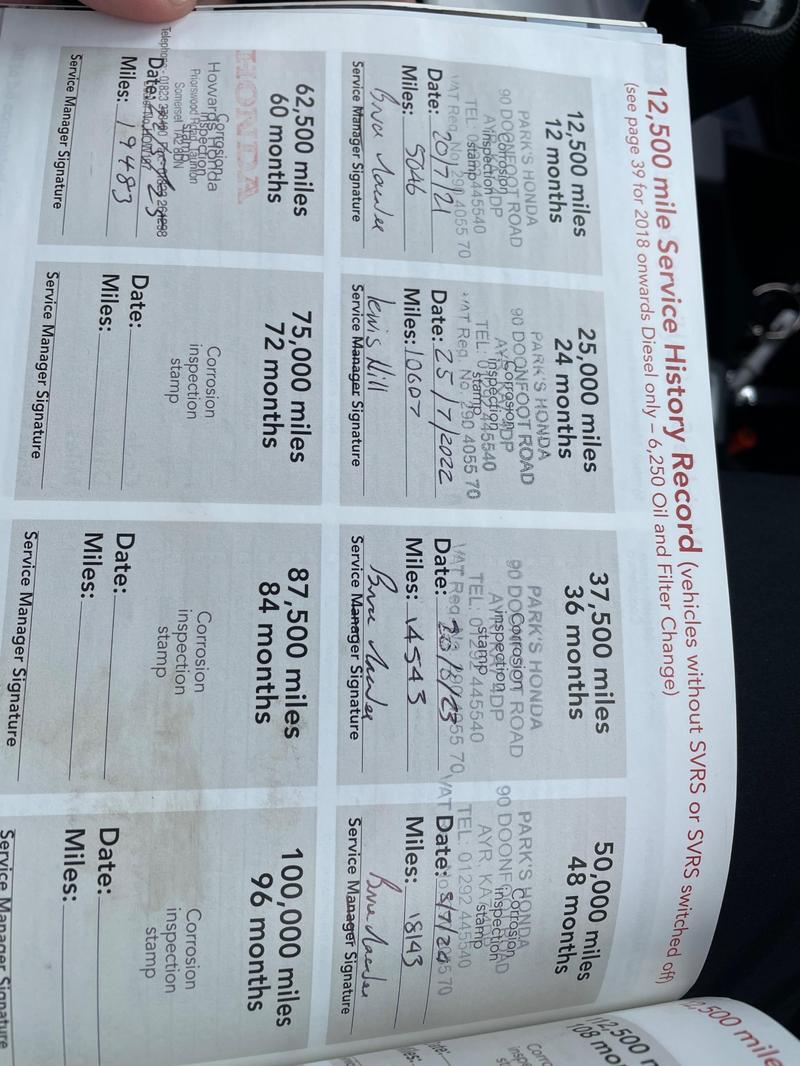 12,500 mile Service History Record (vehicles without SVRS or SVRS switched off)
(see page 39 for 2018 onwards Diesel only – 6,250 Oil and Filter Change)
12,500 miles
12 months
PARK'S HONDA
90 DOONFOOT ROAD
Corrosion
inspection
stamp
TEL: 445540
VAT Reg. No. 290 4055 70
Date: 20/7/21
Miles: 5046
Service Manager Signature
25,000 miles
24 months
PARK'S HONDA
90 DOONFOOT ROAD
Corrosion
inspection
stamp
TEL: 445540
VAT Reg. No. 290 4055 70
Date: 25/7/2022
Miles: 10607
Lewis Hill
Service Manager Signature
37,500 miles
36 months
PARK'S HONDA
90 DOONFOOT ROAD
Corrosion
inspection
stamp
TEL: 01292 445540
VAT Reg
Date:
Miles: 14543
Service Manager Signature
50,000 miles
48 months
PARK'S HONDA
90 DOONFOOT ROAD
Corrosion
inspection
AYR, KA
stamp
TEL: 01292 445540
VAT
Date: 5/7/24
Miles: 1843
Service Manager Signature
62,500 miles
60 months
HONDA
Corrosion
inspection
stamp
Somerset TA2
Telephone:
Date:
Miles: 19483
Service Manager Signature
75,000 miles
72 months
Corrosion
inspection
stamp
Date:
Miles:
Service Manager Signature
87,500 miles
84 months
Corrosion
inspection
stamp
Date:
Miles:
Service Manager Signature
100,000 miles
96 months
Corrosion
inspection
stamp
Date:
Miles:
Service Manager Signature
2,500 mile
112,500
108 mo